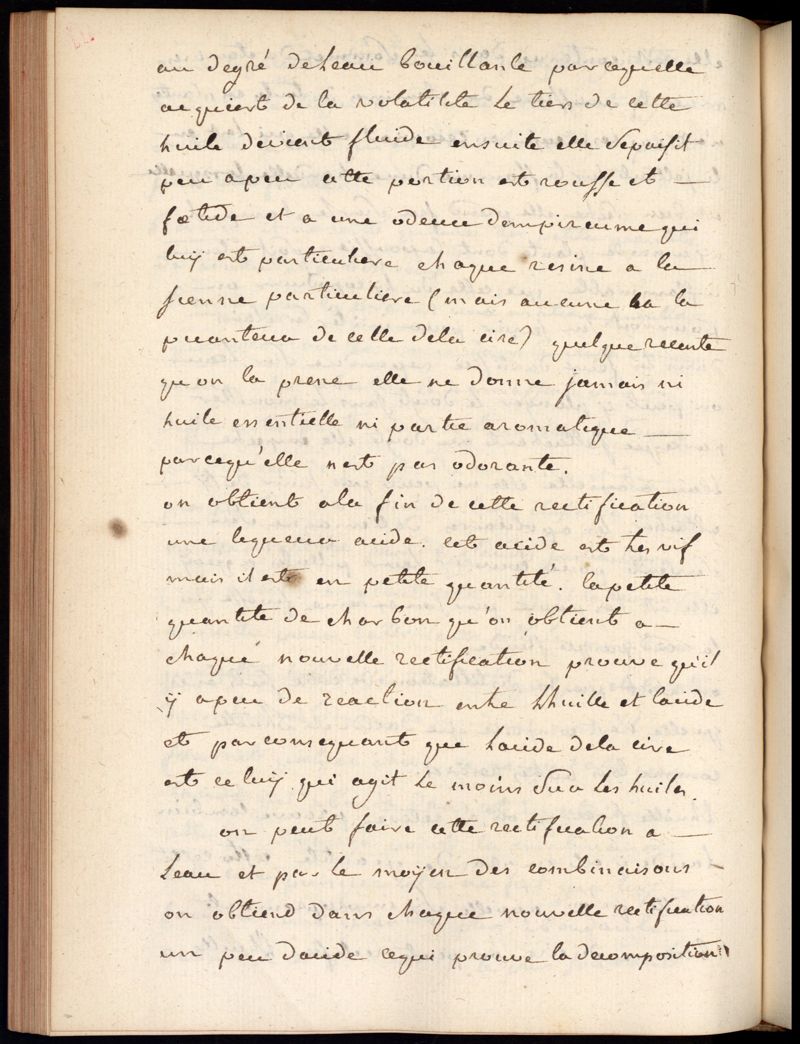 au degré deleau bouillante parcequelle
acquiert de la volatilite Le tiers de cette
huile devient fluide ensuite elle sepaissit
peu apeu cette portion est rousse et —
fœtide et a une odeur dempireume qui
luÿ est particuliere chaque resine a la
sienne particuliere (mais aucune na la
puanteur de celle dela cire) quelque recente
qu'on la prene elle ne donne jamais ni
huile essentielle ni partie aromatique —
parcequ'elle nest pas odorante.
on obtient ala fin de cette rectification
une liqueur acide. cet acide est tres vif
mais il est en petite quantité. la petite
quantité de charbon qu'on obtient a —
chaque nouvelle rectification prouve qu'il
ÿ apeu de reaction entre Lhuille et lacide
et par consequant que Lacide dela cire
est celuÿ qui agit Le moins sur Les huiles.
on peut faire cette rectification a —
Leau et par Le moÿen des combinaisons —
on obtiend dans chaque nouvelle rectification
un peu dacide cequi prouve la decomposition